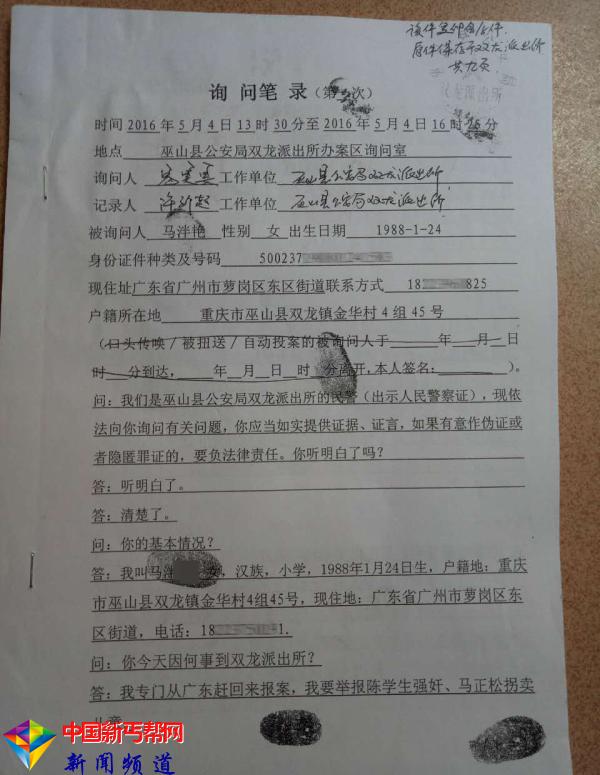 该件是复印自原件.
原件保存于双龙派出所
共九页
双龙派出所
询问笔录(第 次)
时间 2016 年 5 月 4 日 13 时 30 分至 2016 年 5 月 4 日 16 时 分
地点 巫山县公安局双龙派出所办案区询问室
询问人 工作单位 巫山县公安局双龙派出所
记录人 工作单位 巫山县公安局双龙派出所
被询问人 马泮艳 性别 女 出生日期 1988-1-24
身份证件种类及号码 500237
现住址广东省广州市萝岗区东区街道联系方式 18 825
户籍所在地 重庆市巫山县双龙镇金华村 4 组 45 号
(口头传唤/被扭送/自动投案的被询问人于 年 月 日
时 分到达, 年 月 日 时 分离开,本人签名: )。
问:我们是巫山县公安局双龙派出所的民警(出示人民警察证),现依
法向你询问有关问题,你应当如实提供证据、证言,如果有意作伪证或
者隐匿罪证的,要负法律责任。你听明白了吗?
答:听明白了。
答:清楚了。
问:你的基本情况?
答:我叫马泮 女,汉族,小学,1988年1月24日生,户籍地:重庆
市巫山县双龙镇金华村4组45号,现住地:广东省广州市萝岗区东
区街道,电话:18
问:你今天因何事到双龙派出所?
答:我专门从广东赶回来报案,我要举报陈学生强奸、马正松拐卖
儿童
中国新丐帮网
新闻频道